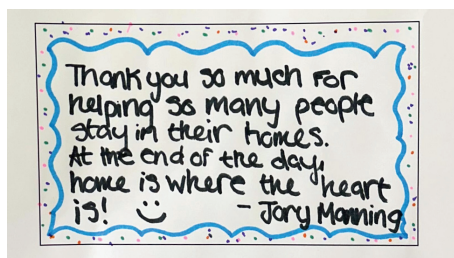 Thank you so much for
helping so many people
stay in their homes.
At the end of the day,
home is where the heart
is! - Jory Manning